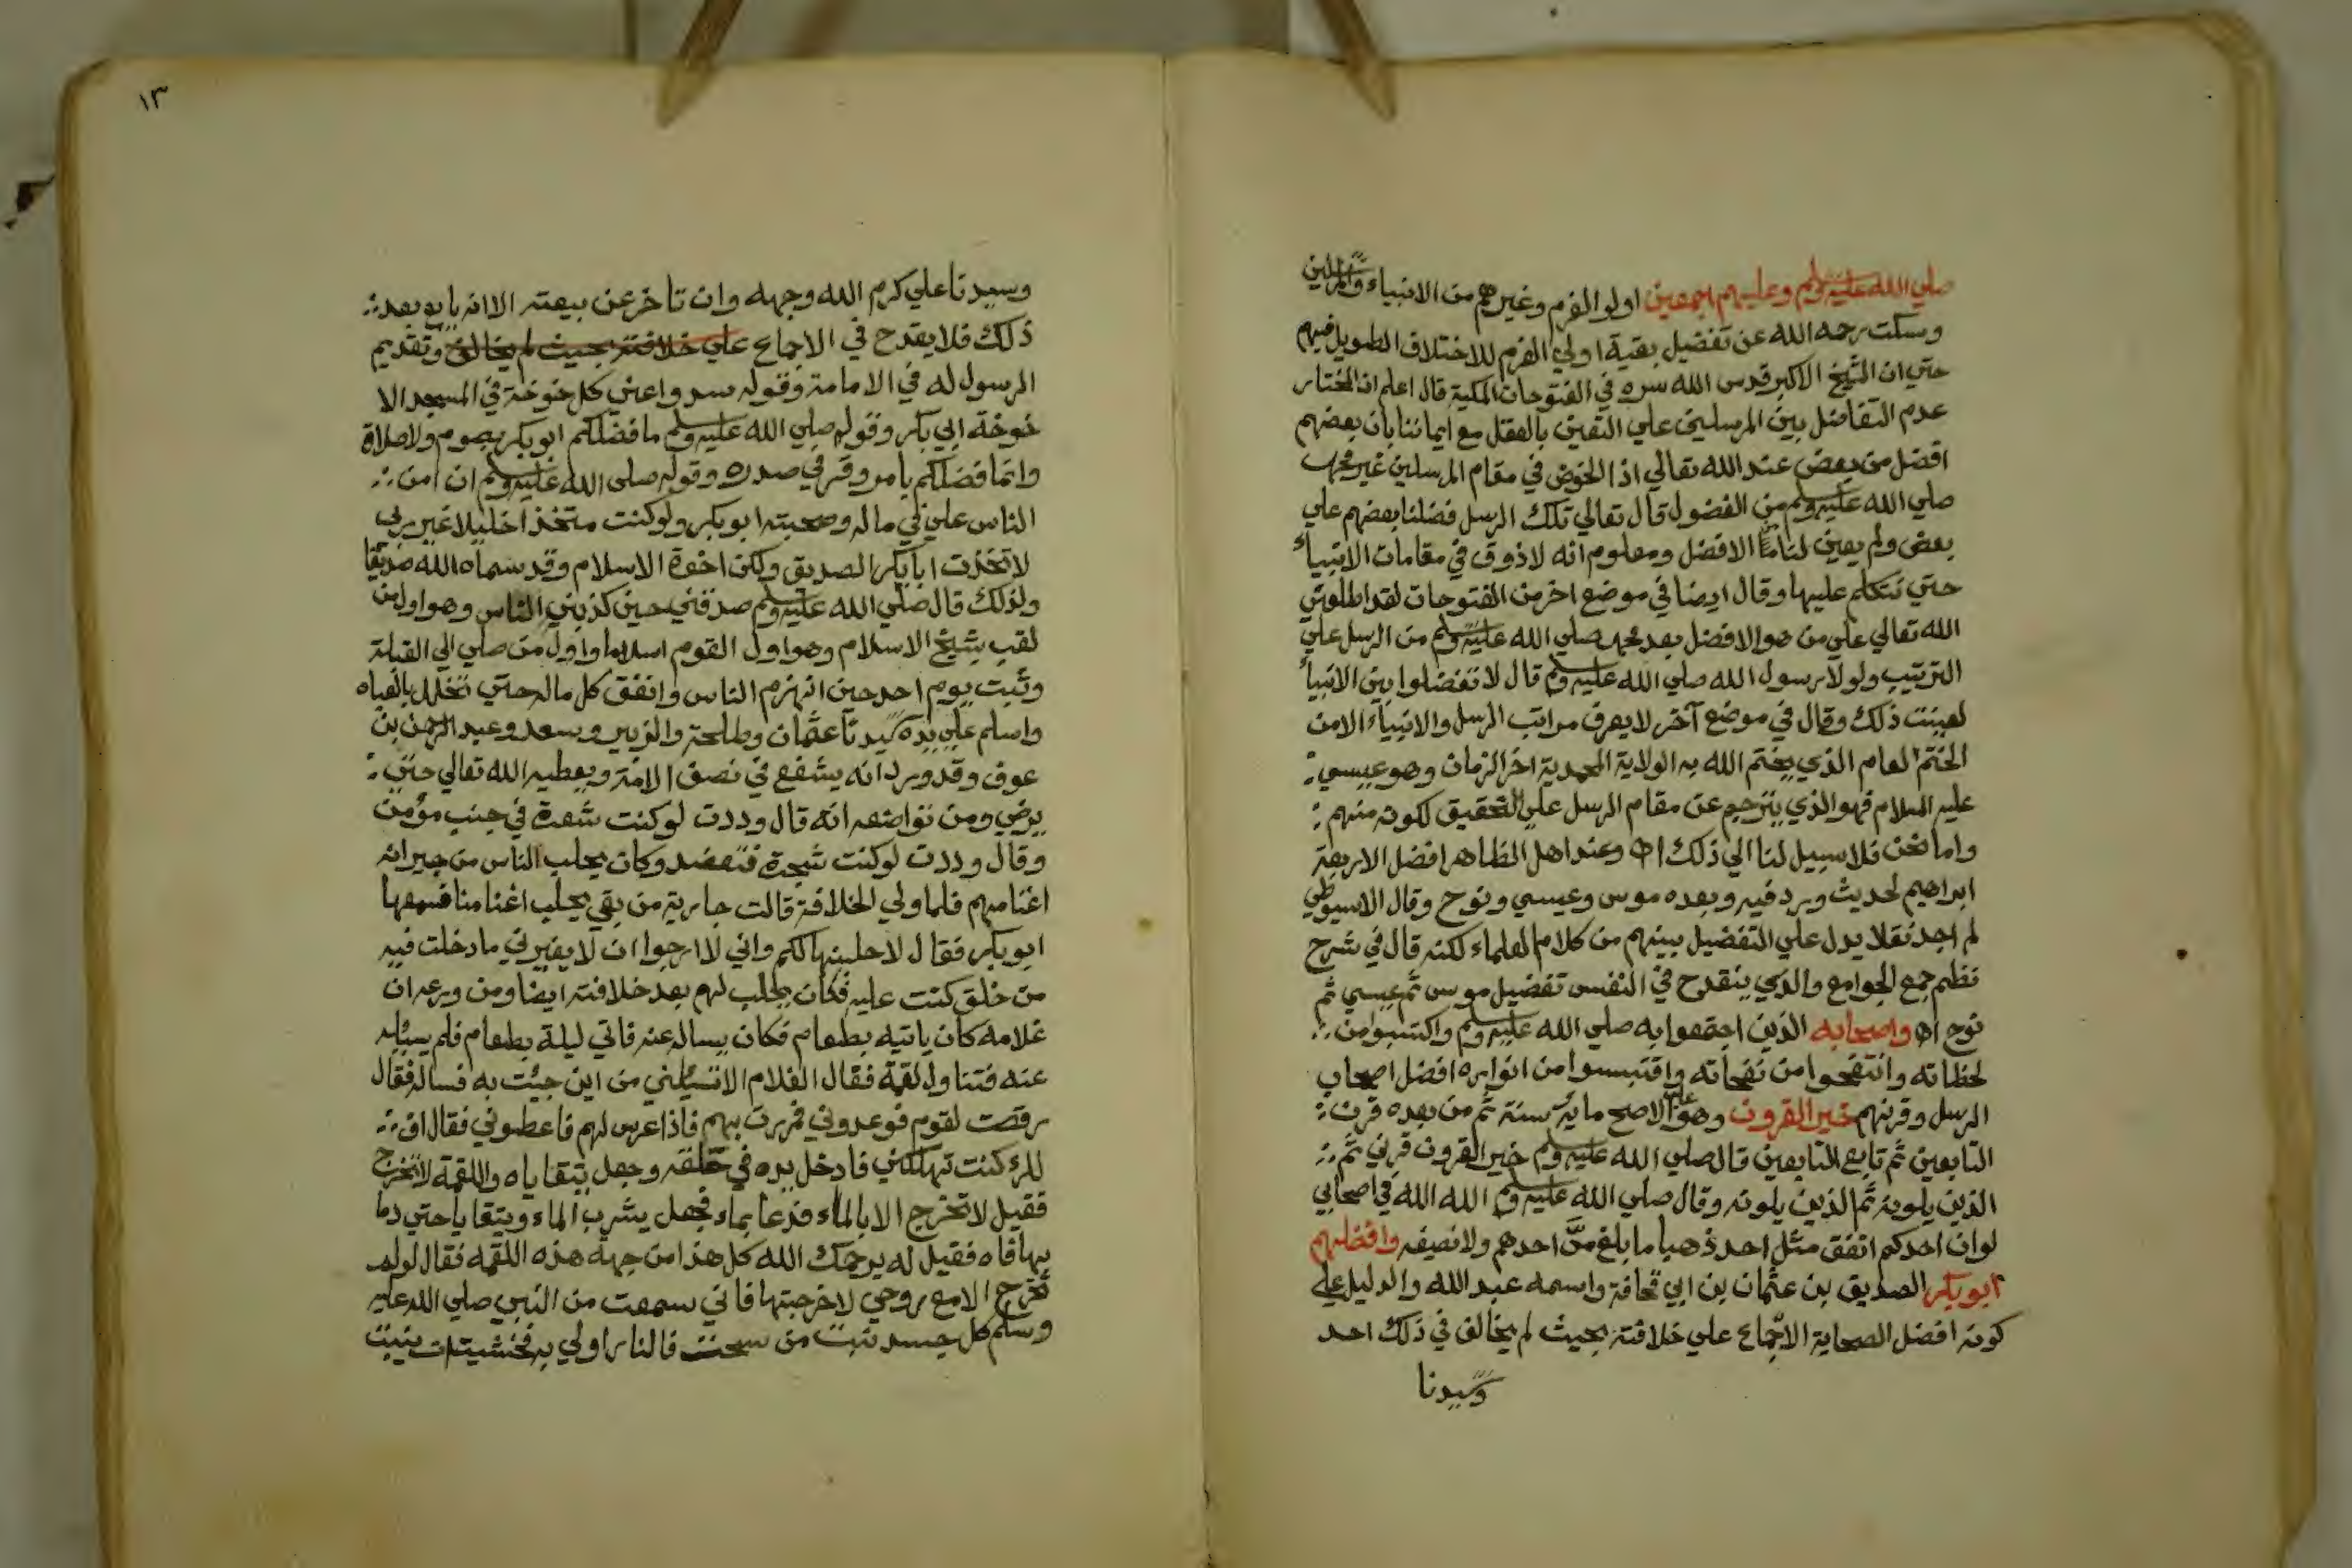 صلي الله عليه وسلم وعليهم اجمعين اولو العزم وغيرهم من الانبياء والمرسلين
وسكت رحمه الله عن تفضيل بقية اولي العزم للاختلاف الطويل فيهم
حتي ان الشيخ الاكبر قدس الله سره في الفتوحات المكية قال اعلم ان المختار
عدم التفاضل بين المرسلين علي التعين بالعقل مع ايماننا بان بعضهم
افضل من بعض عند الله تعالي اذ الخوض في مقام المرسلين غير محمد
صلي الله عليه وسلم من الفضول قال تعالي تلك الرسل فضلنا بعضهم علي
بعض ولم يعين لنا الافضل ومعلوم انه لا ذوق في مقامات الانبياء
حتي نتكلم عليها وقال ايضا في موضع اخر من الفتوحات لقد اطلعني
الله تعالي علي من هو الافضل بعد محمد صلي الله عليه وسلم من الرسل علي
الترتيب ولولا رسول الله صلي الله عليه وسلم قال لا تفضلوا بين الانبياء
لعينت ذلك وقال في موضع آخر لا يعرف مراتب الرسل والانبياء الا من
الختم العام الذي يختم الله به الولاية المحمدية اخر الزمان وهو عيسي
عليه السلام فهو الذي يترجم عن مقام الرسل علي التحقيق لكونه منهم
واما نحن فلا سبيل لنا الي ذلك اه وعند اهل الظاهر افضل الاربعة
ابراهيم لحديث ورد فيه وبعده موسي وعيسي ونوح وقال الاسيوطي
لم اجد نقلا يدل علي التفضيل بينهم من كلام العلماء لكنه قال في شرح
نظم جمع الجوامع والذي ينقدح في النفس تفضيل موسي ثم عيسي ثم
نوح اه واصحابه الذين اجتمعوا به صلي الله عليه وسلم واكتسبوا من
لحظاته وانتفحوا من نفحاته واقتبسوا من انواره افضل اصحاب
الرسل وقرنهم خير القرون وهو علي الاصح ماية سنة ثم من بعده قرن
التابعين ثم تابع التابعين قال صلي الله عليه وسلم خير القرون قرني ثم
الذين يلونه ثم الذين يلونه وقال صلي الله عليه وسلم الله الله في اصحابي
لو ان احدكم انفق مثل احد ذهبا ما بلغ مد احدهم ولا نصيفه وافضلهم
ابو بكر الصديق بن عثمان بن ابي قحافة واسمه عبد الله والدليل علي
كونه افضل الصحابة الاجماع علي خلافته بحيث لم يخالف في ذلك احد
وسيدنا
١٣
وسيدنا علي كرم الله وجهه وان تاخر عن بيعته الا انه بايع بعد
ذلك فلا يقدح في الاجماع علي خلافته بحيث لم يخالف وتقديم
الرسول له في الامامة وقوله سدوا عني كل خوخة في المسجد الا
خوخة ابي بكر وقوله صلي الله عليه وسلم ما فضلكم ابو بكر بصوم ولا صلاة
وانما فضلكم بامر وقر في صدره وقوله صلي الله عليه وسلم ان امن
الناس علي في ماله وصحبته ابو بكر ولو كنت متخذا خليلا غير ربي
لاتخذت ابا بكر الصديق ولكن اخوة الاسلام وقد سماه الله صديقا
ولذلك قال صلي الله عليه وسلم صدقني حين كذبني الناس وهو اول من
لقب بشيخ الاسلام وهو اول القوم اسلاما واول من صلي الي القبلة
وثبت يوم احد حين انهزم الناس وانفق كل ماله حتي تخلل بالعباه
واسلم علي يده سيدنا عثمان وطلحة والزبير وسعد وعبد الرحمن بن
عوف وقد ورد انه يشفع في نصف الامة ويعطيه الله تعالي حتي
يرضي ومن تواضعه انه قال وددت لو كنت شعرة في جنب مؤمن
وقال وددت لو كنت شجرة فتعضد وكان يحلب الناس من جيرانه
اغنامهم فلما ولي الخلافة قالت جارية من بقي يحلب اغنامنا فسمعها
ابو بكر فقال لاحلبنها لكم واني لارجوا ان لا يغيرني ما دخلت فيه
من خلق كنت عليه فكان يحلب لهم بعد خلافته ايضا ومن ورعه ان
غلامه كان ياتيه بطعام فكان يساله عنه فاتي ليلة بطعام فلم يساله
عنه فتناول لقمة فقال الغلام الا تسئلني من اين جيئت به فساله فقال
رقصت لقوم فوعدوني فمررت بهم فاذا عرس لهم فاعطوني فقال اف
لك كنت تهلكني فادخل يده في حلقه وجعل يتقاياه واللقمة لا تخرج
فقيل لا تخرج الا بالماء فدعا بماء فجعل يشرب الماء ويتقايا حتي رما
بها فاه فقيل له يرحمك الله كل هذا من جهة هذه اللقمه فقال لو لم
تخرج الا مع روحي لاخرجتها فاني سمعت من النبي صلي الله عليه
وسلم كل جسد نبت من سحت فالنار اولي به فخشيت ان ينبت